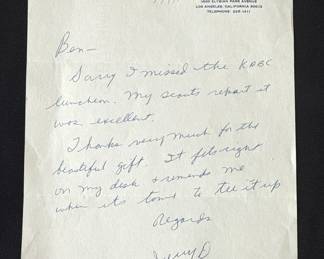 1000 ELYSIAN PARK AVENUE
LOS ANGELES, CALIFORNIA 90012
TELEPHONE:
Ben—
Sorry I missed the KABC
luncheon. My scouts report it
was excellent.
Thanks very much for the
beautiful gift. It fits right
on my desk & reminds me
when it's time to tee it up
Regards